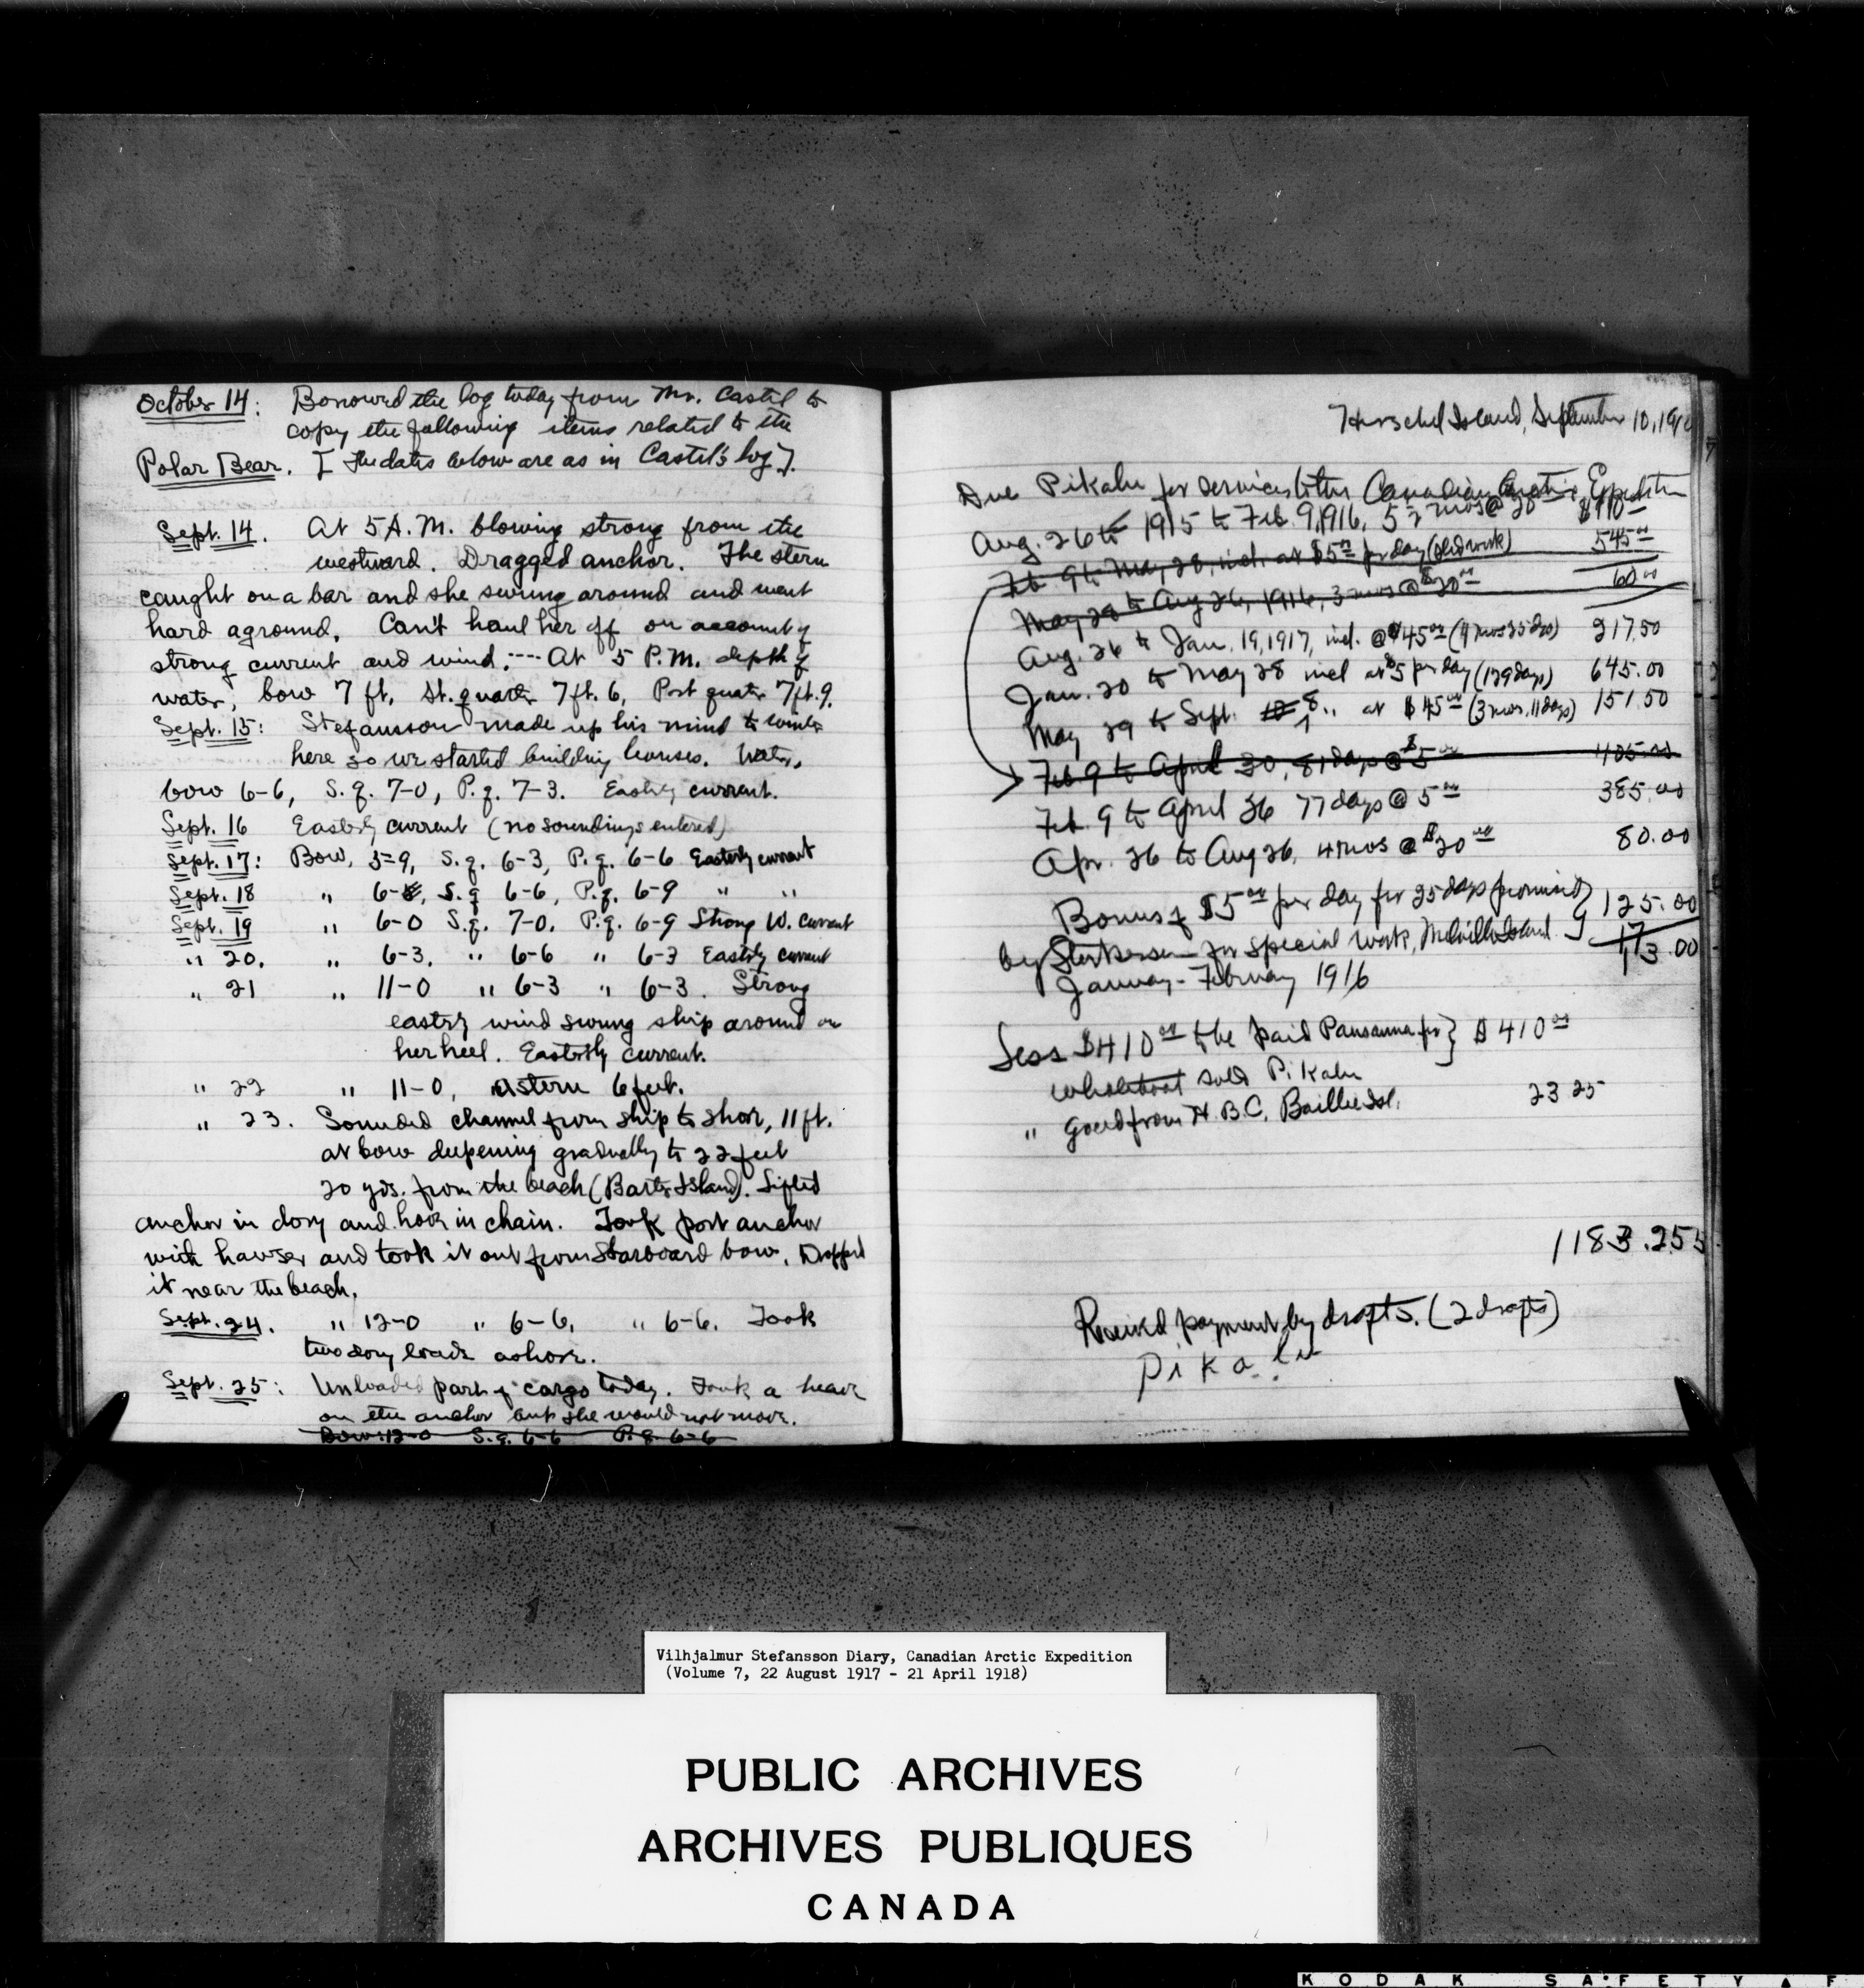 October 14: Borrowed the log today from Mr. Castel to
copy the following items related to the
Polar Bear. [The dates below are as in Castel's log].
Sept. 14. At 5 A.M. blowing strong from the
westward. Dragged anchor. The stern
caught on a bar and she swung around and went
hard aground. Can't haul her off on account of
strong current and wind.--- At 5 P.M. depth of
water, bow 7 ft, St. quarter 7 ft. 6, Port quater 7 ft. 9.
Sept. 15: Stefansson made up his mind to winter
here so we started building houses. Water,
bow 6-6, S.q. 7-0, P.q. 7-3. Easterly current.
Sept. 16 Easterly current (no soundings entered)
Sept. 17: Bow, 5=9, S.q. 6-3, P.q. 6-6 Easterly current
Sept. 18 " 6-, S.q 6-6, P.q. 6-9 " "
Sept. 19 " 6-0 S.q. 7-0. P.q. 6-9 Strong W. current
" 20. " 6-3. " 6-6 " 6-3 Easterly current
" 21 " 11-0 " 6-3 " 6-3. Strong
easterly wind swung ship around on
her heel. Easterly current.
" 22 " 11-0, astern 6 feet.
" 23. Sounded channel from ship to shore, 11 ft.
at bow deepening gradually to 22 feet
20 yds. from the beach (Barter Island). Lifted
anchor in dory and hove in chain. Took port anchor
with hawser and took it out from Starboard bow. Dropped
it near the beach.
Sept. 24. " 12-0 " 6-6, " 6-6. Took
two dory loads ashore.
Sept. 25: Unloaded part of cargo today. Took a heave
on the anchor but she would not move.
Bow: 12-0 S.q. 6-6 P.q. 6-6
Herschel Island, September 10, 191
Due Pikalu for services to the Canadian Arctic Expedition
Aug. 26 to 1915 to Feb. 9, 1916, 5½ mos @ 20 $110 00
Feb 9 to May 28, incl. at $5 00 per day (sled work) 545 00
May 28 to Aug 26, 1916, 3 mos @ $20 00 60 00
Aug. 26 to Jan. 19, 1917, incl. @ $45 00 (4 mos 25 dys) 217.50
Jan. 20 to May 28 incl at $5 per day (129 days) 645.00
May 29 to Sept. 8 " at $45 00 (3 mos. 11 days) 151.50
Feb 9 to April 30, 81 days @ $5 00 405.00
Feb. 9 to April 26 77 days @ 5 00 385.00
Apr. 26 to Aug 26, 4 mos @ $20 00 80.00
Bonus of $5 00 per day for 25 days promised } 125.00
by Storkerson for special work, Melville Island 1713.00
January - February 1916
Less $410 00 to be paid Pausanna for } $410 00
whaleboat sold Pikalu
" goods from H.B.C. Baillie Isl. 23 25
1183.255
Received payment by drafts. (2 drafts)
Pikalu
Vilhjalmur Stefansson Diary, Canadian Arctic Expedition
(Volume 7, 22 August 1917 - 21 April 1918)
PUBLIC ARCHIVES
ARCHIVES PUBLIQUES
CANADA
KODAK SAFETY F